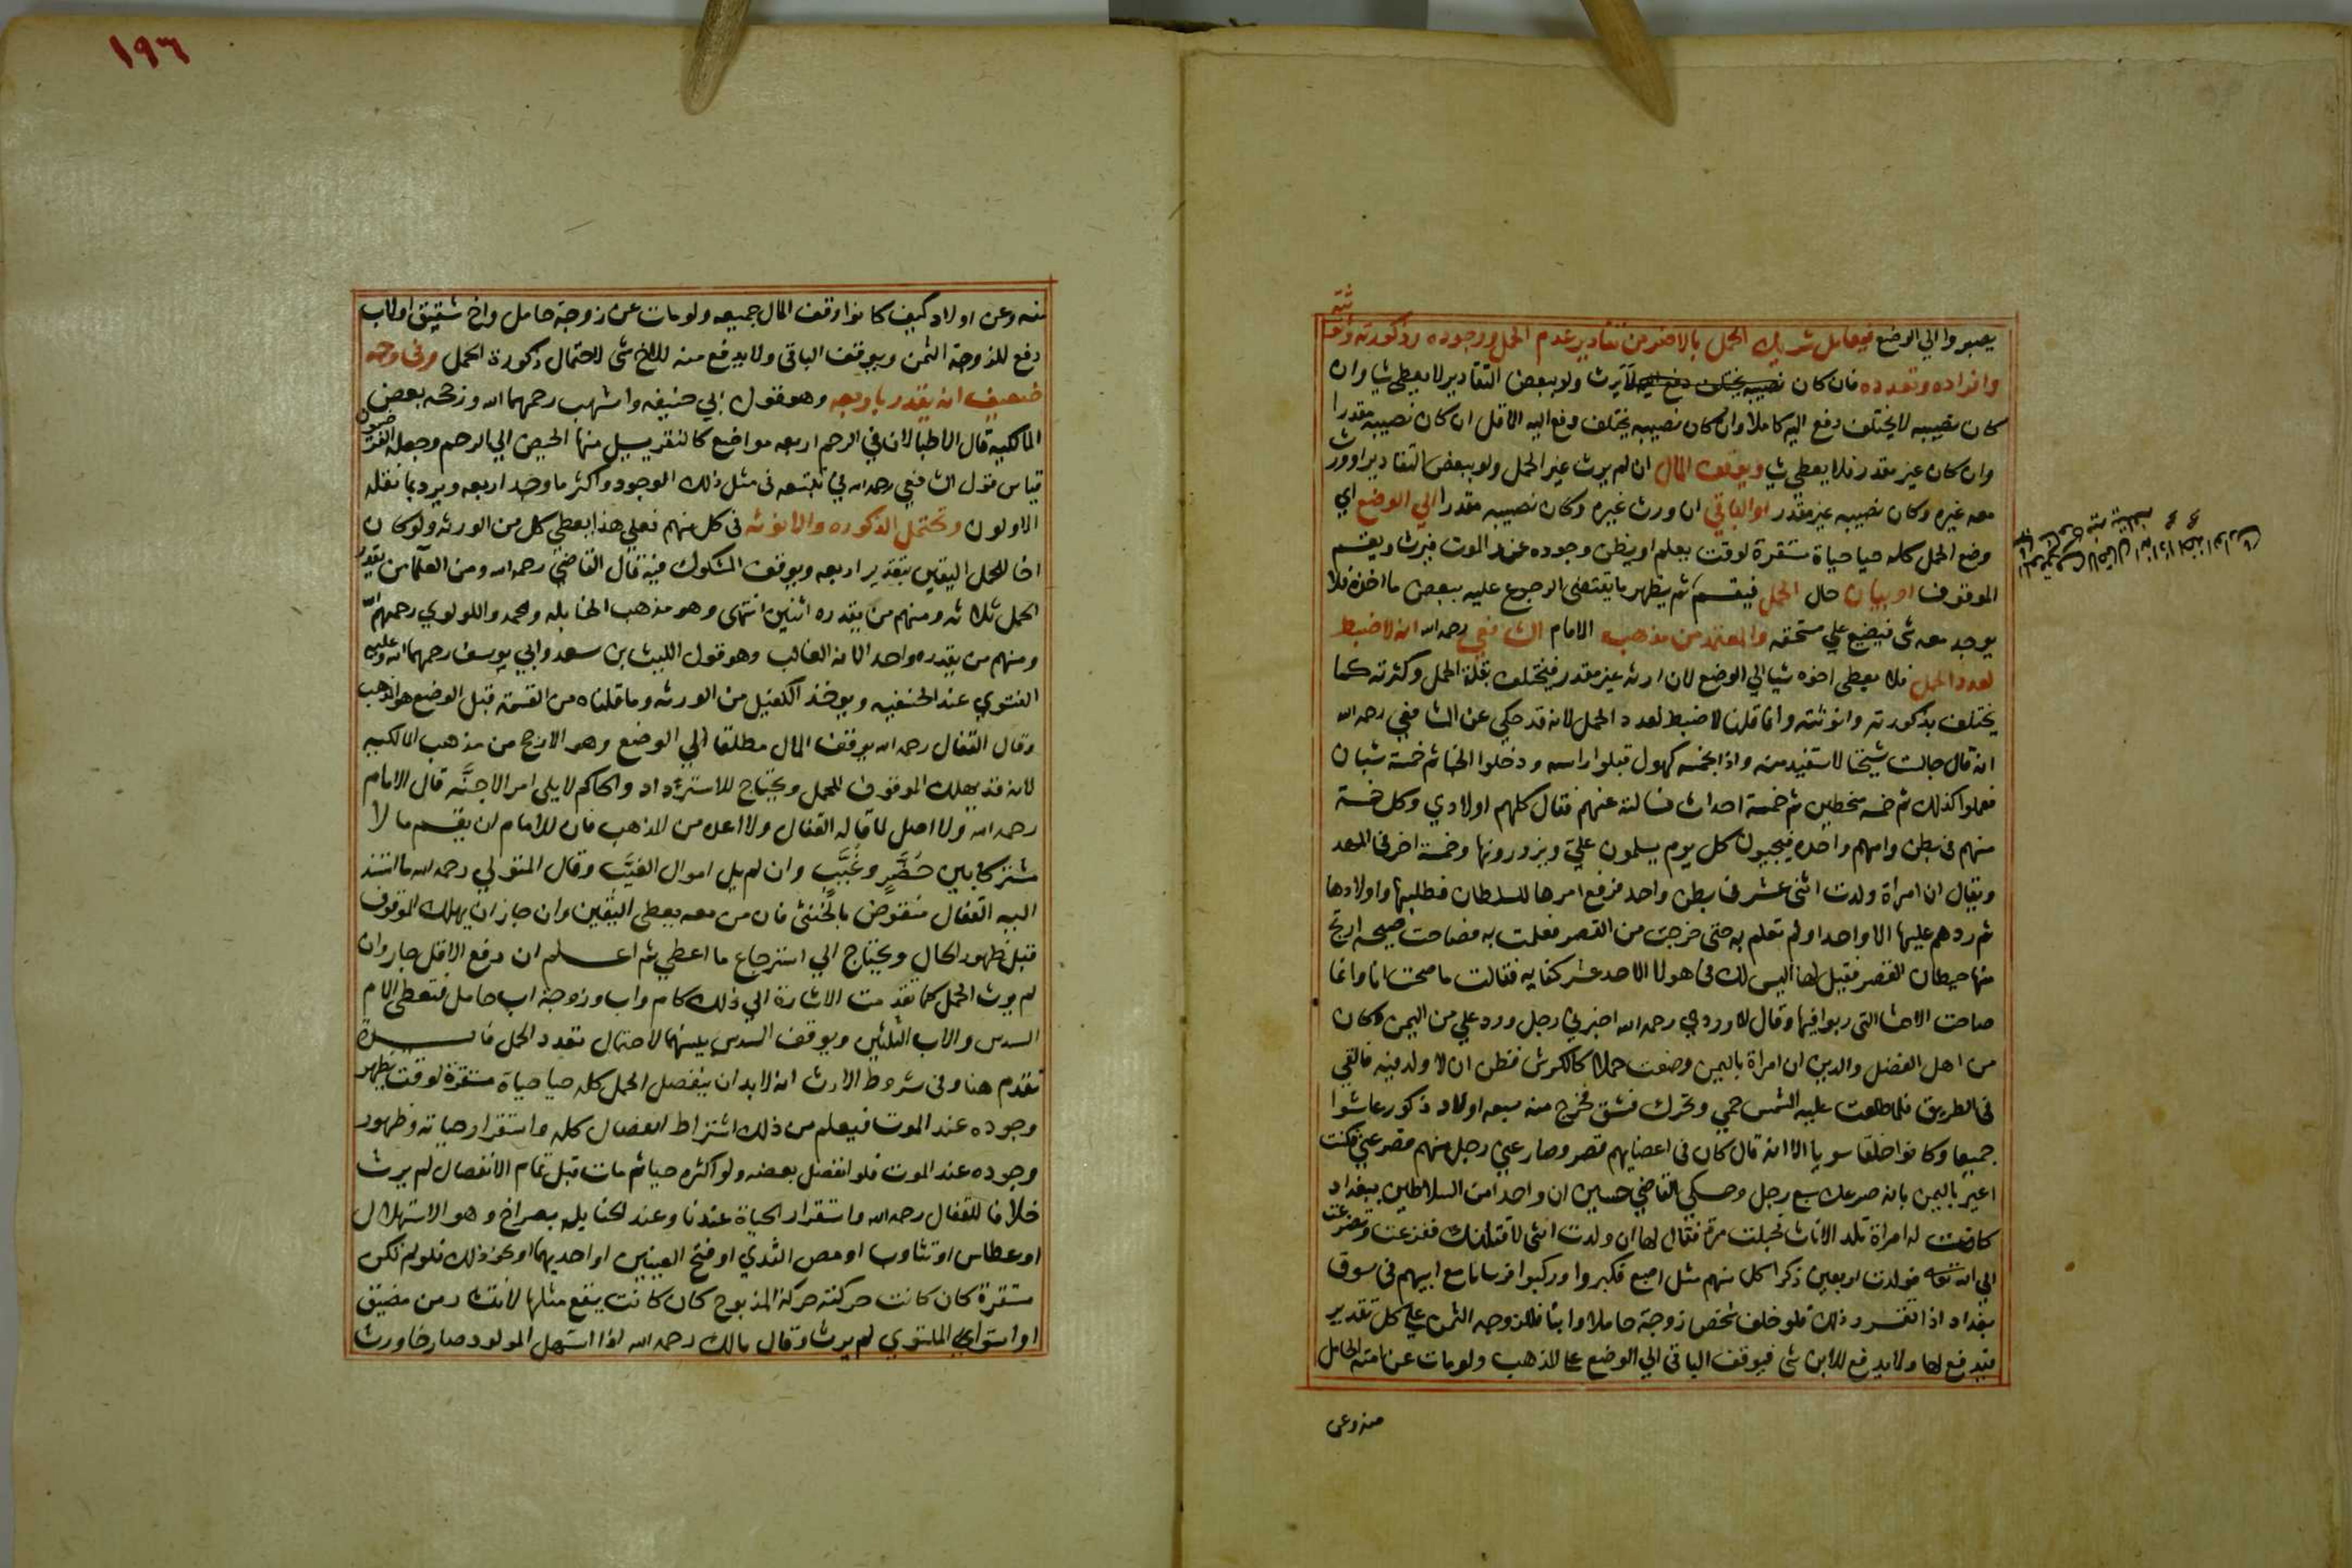 يصبروا الي الوضع فيعامل شريك الحمل بالاضر من تقادير عدم الحمل ووجوده وذكورته وانوثته
وافراده وتعدده فان كان لا يرث ولو ببعض التقادير لا يعطي شيا وان
كان نصيبه لا يختلف دفع اليه كاملا وان كان نصيبه يختلف دفع اليه الاقل ان كان نصيبه مقدرا
وان كان غير مقدر فلا يعطي شيا ويوقف المال ان لم يرث غير الحمل ولو ببعض التقادير او ورث
معه غيره وكان نصيبه غير مقدر او الباقي ان ورث غيره وكان نصيبه مقدرا الي الوضع اي
وضع الحمل كله حيا حياة مستقرة لوقت يعلم او يظن وجوده عند الموت فيرث ويقسم
الموقوف او بيان حال الحمل فيقسم ثم يظهر ما يقتضي الرجوع عليه ببعض ما اخذه فلا
يوجد معه شى فيضيع علي مستحقه والمعتمد من مذهب الامام الشافعي رحمه الله انه لا ضبط
لعدد الحمل فلا يعطي اخوه شيا الي الوضع لان ارثه غير مقدر فيختلف بقلة الحمل وكثرته كما
يختلف بذكورته وانوثته وانما قلنا لا ضبط لعدد الحمل لانه قد حكي عن الشافعي رحمه الله
انه قال جالست شيخا لاستفيد منه واذا بخمسة كهول قبلوا راسه ودخلوا الخبا ثم خمسة شبان
فعلوا كذلك ثم خمسة منحطين ثم خمسة احداث فسالته عنهم فقال كلهم اولادي وكل خمسة
منهم في بطن وامهم واحده فيجيون كل يوم يسلمون علي ويزورونها وخمسة اخر في المهد
ويقال ان امراة ولدت اثني عشر في بطن واحد فرفع امرها للسلطان فطلبها واولادها
ثم ردهم عليها الا واحدا ولم تعلم به حتى خرجت من القصر فعلمت به فصاحت صيحه ارتج
منها حيطان القصر فقيل لها اليس لك في هولا الاحد عشر كفايه فقالت ما صحت انا وانما
صاحت الاحشا التي ربوا فيها وقال الماوردي رحمه الله اخبرني رجل ورد علي من اليمن وكان
من اهل الفضل والدين ان امراة باليمن وضعت حملا كالكرش فظن ان لا ولد فيه فالقي
في الطريق فلما طلعت عليه الشمس حمي وتحرك فشق فخرج منه سبعه اولاد ذكور عاشوا
جميعا وكانوا خلقا سويا الا انه قال كان في اعضايهم قصر وصارعني رجل منهم فصرعني فكنت
اعير باليمن بانه صرعك سبع رجل وحكي القاضي حسين ان واحدا من السلاطين ببغداد
كانت له امراة تلد الاناث فحبلت مرة فقال لها ان ولدت انثى لاقتلنك ففزعت وتضرعت
الي الله تعالي فولدت اربعين ذكرا كل منهم مثل اصبع فكبروا وركبوا فرسانا مع ابيهم في سوق
بغداد اذا تقرر ذلك فلو خلف شخص زوجة حاملا وابنا فللزوجه الثمن علي كل تقدير
فيدفع لها ولا يدفع للابن شى فيوقف الباقي الي الوضع علي المذهب ولو مات عن امته الحامل
منه وعن
١٩٦
منه وعن اولاد كيف كانوا وقف المال جميعه ولو مات عن زوجة حامل واخ شقيق او لاب
دفع للزوجة الثمن ويوقف الباقي ولا يدفع منه للاخ شى لاحتمال ذكورة الحمل وفي وجه
ضعيف انه يقدر باربعه وهو قول ابي حنيفه واشهب رحمهما الله ورجحه بعض
المالكيه قال الاطبا لان في الرحم اربعه مواضع كالنقر يسيل منها الحيض الي الرحم وجعله الفرضيون
قياس قول الشافعي رحمه الله في تتبعه في مثل ذلك الوجود واكثر ما وجد اربعه ويرد بما نقله
الاولون وتحتمل الذكوره والانوثه في كل منهم فعلي هذا يعطي كل من الورثه ولو كان
اخا للحمل اليقين بتقدير اربعه ويوقف المشكوك فيه قال القاضي رحمه الله ومن العلما من يقدر
الحمل ثلاثه ومنهم من يقدره اثنين انتهى وهو مذهب الحنابله ومحمد واللولوي رحمهم الله
ومنهم من يقدره واحدا لانه الغالب وهو قول الليث بن سعد وابي يوسف رحمهما الله وعليه
الفتوي عند الحنفيه ويوخذ الكفيل من الورثه وما قلناه من القسمة قبل الوضع هو المذهب
وقال القفال رحمه الله يوقف المال مطلقا الي الوضع وهو الارجح من مذهب المالكيه
لانه قد يهلك الموقوف للحمل ويحتاج للاسترداد والحاكم لا يلي امر الاجنة قال الامام
رحمه الله ولا اصل لما قاله القفال ولا اعده من المذهب فان للامام ان يقسم مالا
مشتركا بين حضر وغيب وان لم يلي اموال الغيب وقال المتولي رحمه الله ما استند
اليه القفال منقوض بالخنثى فان من معه يعطي اليقين وان جاز ان يهلك الموقوف
قبل ظهور الحال ويحتاج الي استرجاع ما اعطي ثم اعلم ان دفع الاقل جار وان
لم يرث الحمل كما تقدمت الاشارة الي ذلك كام واب وزوجة اب حامل فتعطي الام
السدس والاب الثلثين ويوقف السدس بينهما لاحتمال تعدد الحمل فايدة
تقدم هنا وفي شروط الارث انه لابد ان ينفصل الحمل كله حيا حياة مستقرة لوقت يظهر
وجوده عند الموت فيعلم من ذلك اشتراط انفصال كله واستقرار حياته وظهور
وجوده عند الموت فلو انفصل بعضه ولو اكثره حيا ثم مات قبل تمام الانفصال لم يرث
خلافا للقفال رحمه الله واستقرار الحياة عندنا وعند الحنابله بصراخ وهو الاستهلال
او عطاس او تثاوب او مص الثدي او فتح العينين او احديهما او نحو ذلك فلو لم تكن
مستقرة كان كانت حركته حركة المذبوح كان كانت يقع مثلها لانتشار من مضيق
او استوا الملتوي لم يرث وقال مالك رحمه الله اذا استهل المولود صارخا ورث